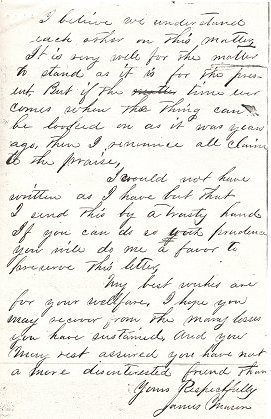 I believe we understand
each other on this matter
It is very well for the matter
to stand as it is for the pres-
ent But if the matter time ever
comes when the thing can
be looked on as it was years
ago, then I renounce all claim
to the praise,
I would not have
written as I have but that
I send this by a trusty hand
If you can do so with prudence
you will do me a favor to
preserve this letter
My best wishes are
for your wellfare, I hope you
may recover from the many losses
you have sustained, and you
may rest assured you have not
a more disinterested friend than
Yours Respectfully
James